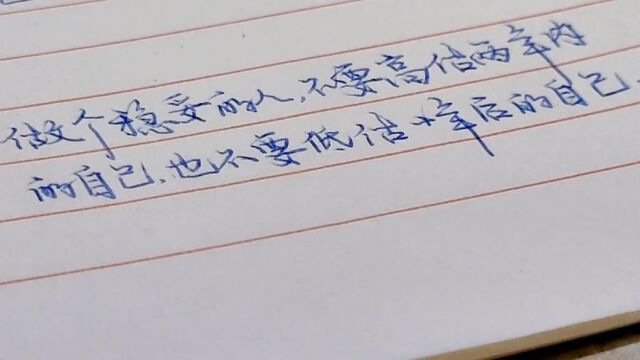 做个稳妥的人,不要高估两年内
的自己,也不要低估十年后的自己